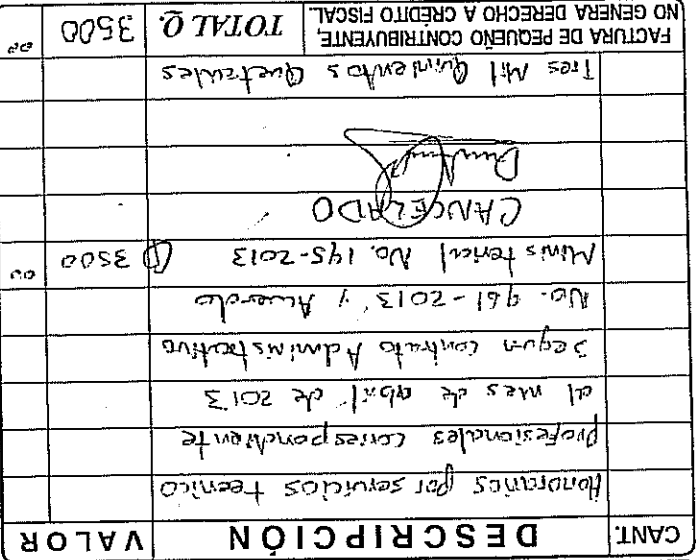 CANT. DESCRIPCIÓN VALOR
Honorarios por servicios tecnico
Profesionales correspondiente
al mes de abril de 2013
Segun contrato Administrativo
No. 961-2013 y Acuerdo
Ministerial No. 145-2013 Q 3500 00
CANCELADO
Tres Mil Quinientos Quetzales
FACTURA DE PEQUEÑO CONTRIBUYENTE, NO GENERA DERECHO A CRÉDITO FISCAL. TOTAL Q. 3500 00